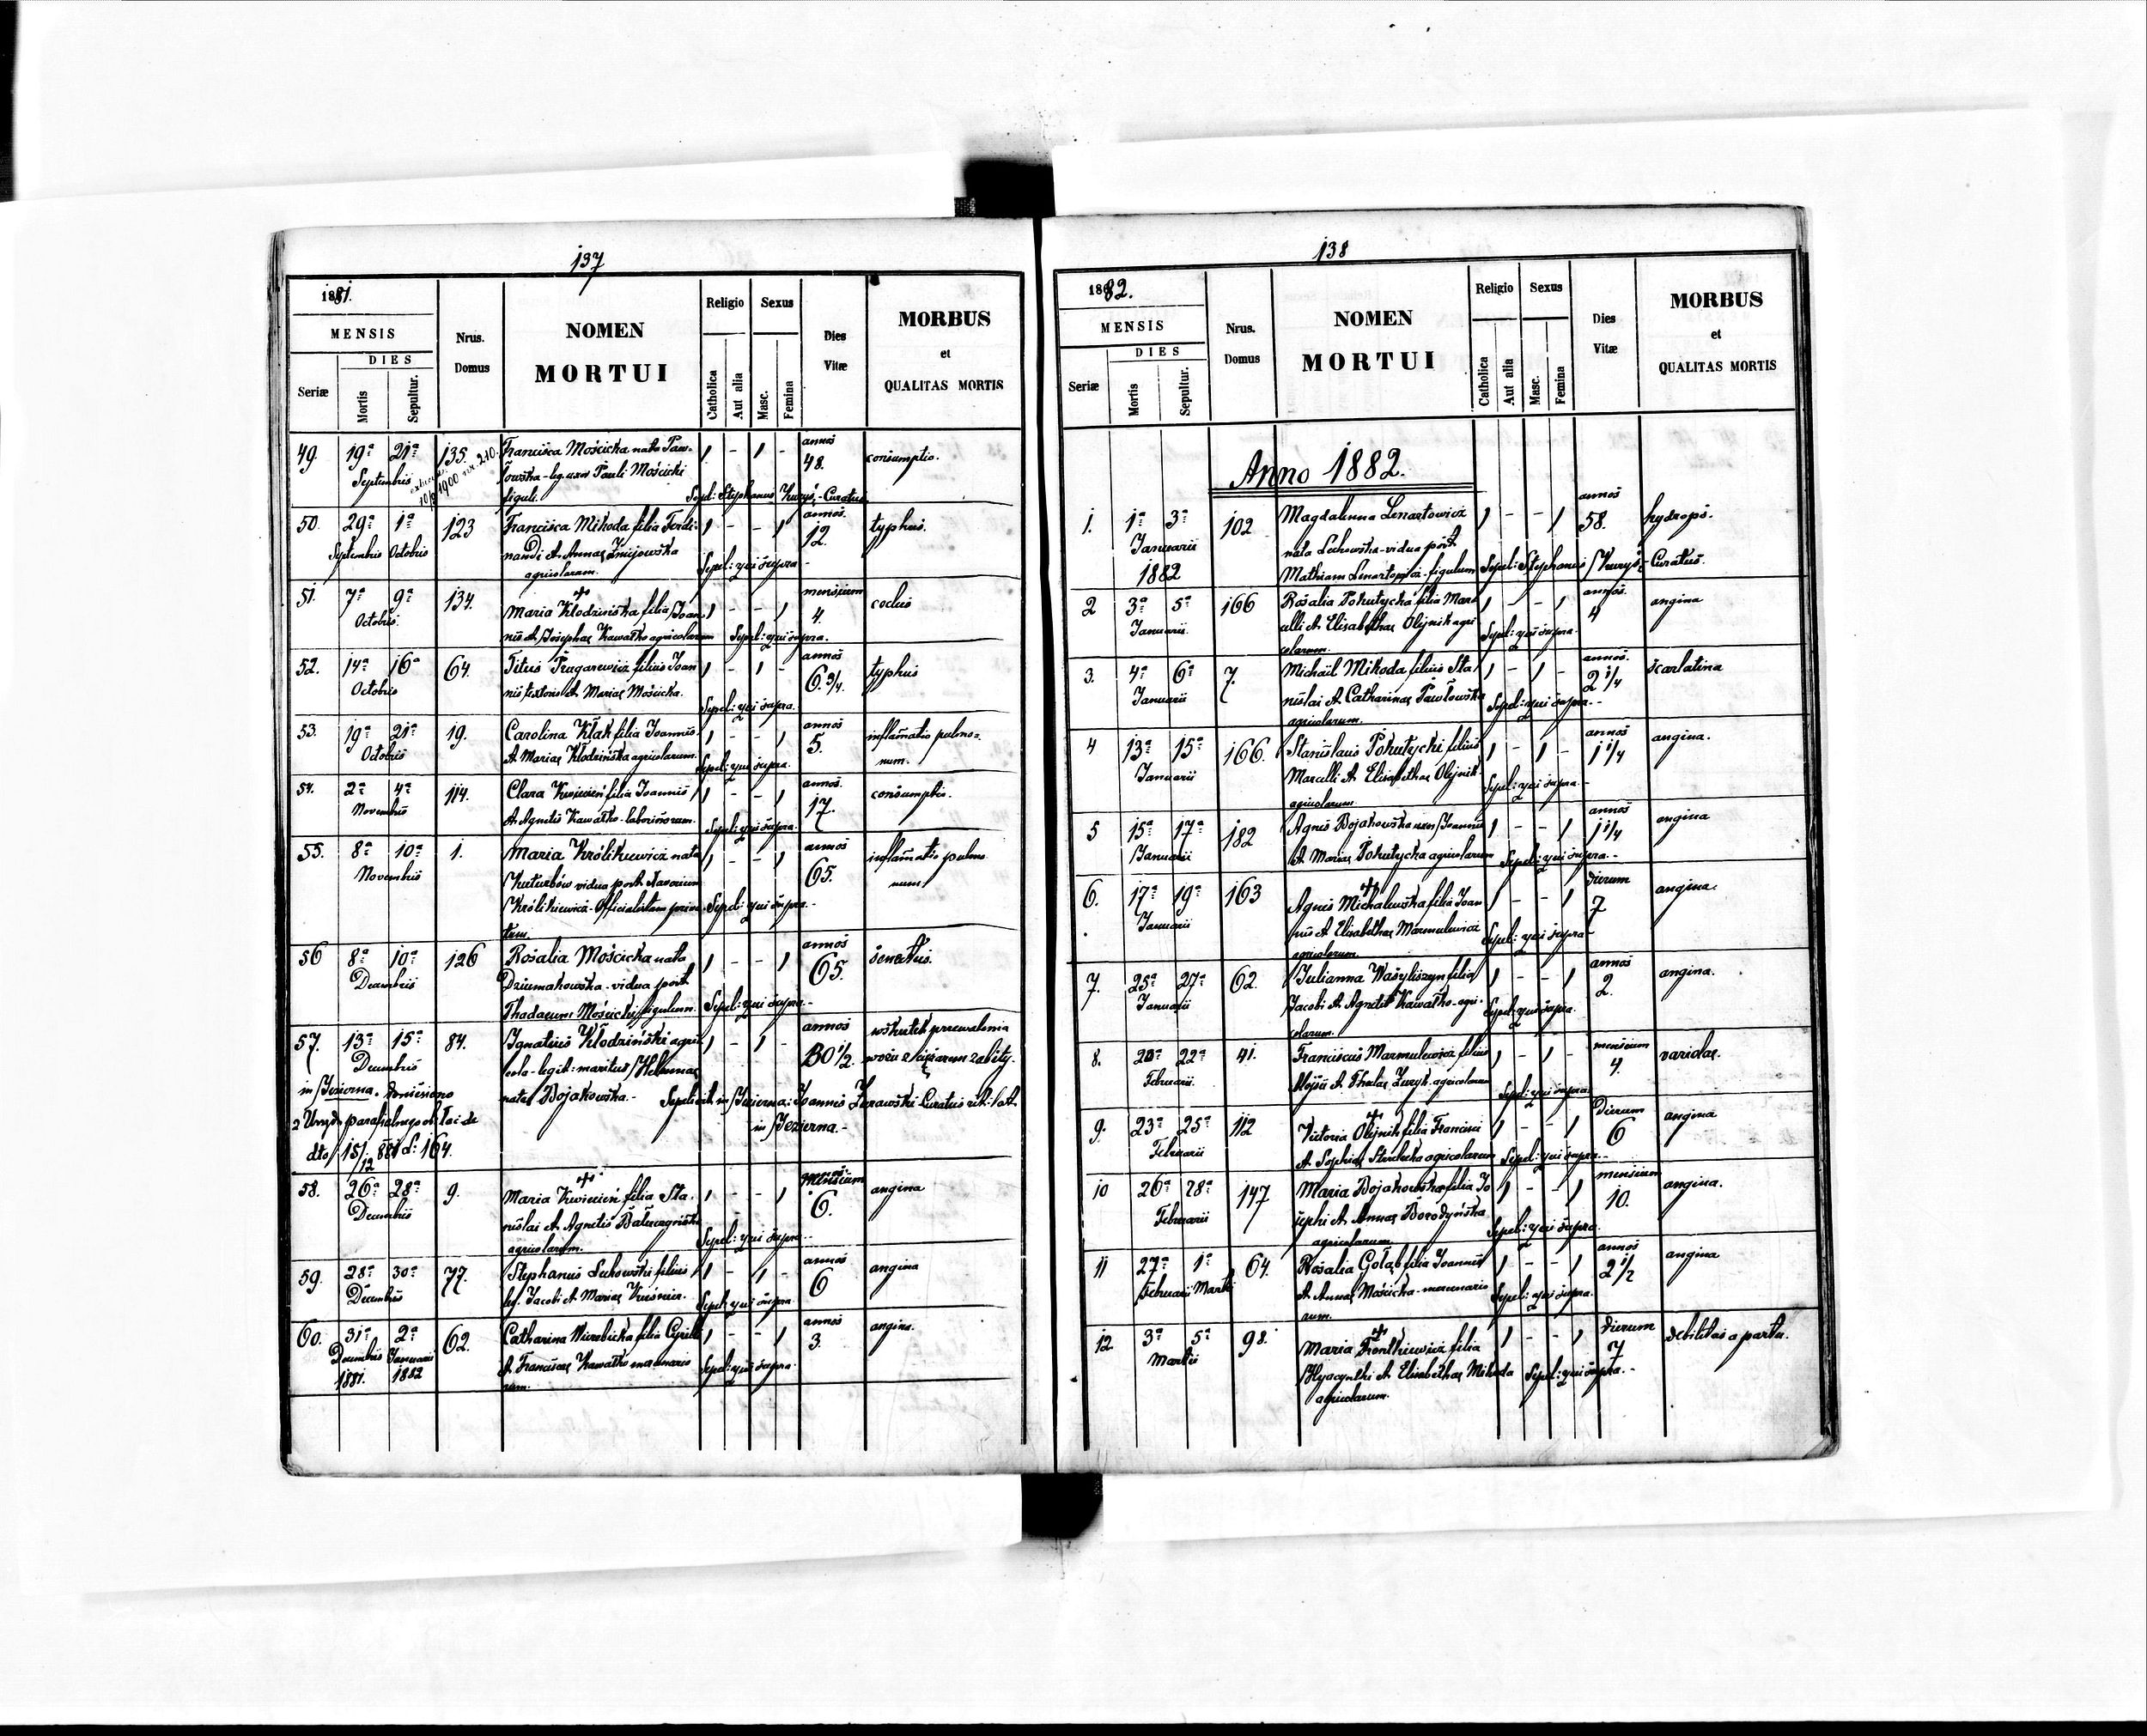 137
1881.
MENSIS
DIES
Seriæ
Mortis
Sepultur.
Nrus.
Domus
NOMEN
MORTUI
Religio
Catholica
Aut alia
Sexus
Masc.
Femina
Dies
Vitæ
MORBUS
et
QUALITAS MORTIS
49. 19a 21a 135. Francisca Mościcka nata Paw- 1 - 1 - annos
Septembris łowska - leg. uxor Pauli Mościcki 48. consumptio.
figuli. Sepel: Stephanus - Curatus
50. 29a 1a 123 Francisca Mikoda filia Ferdi- 1 - - 1 annos. typhus.
Septembris Octobris nandi et Annae Żmijowska 12.
agricolarum. Sepel: qui supra -
51. 7a 9a 134. Maria Kłodzińska filia Joan 1 - - 1 mensium
Octobris. nis et Josephae Kawałko agricolarum 4.
Sepel: qui supra.
52. 14a 16a 64. Titus filius Joan 1 - 1 - annos typhus
Octobris nis textoris et Mariae Mościcka. 6 3/4.
Sepel: qui supra.
53. 19a 21a 19. Carolina Kłak filia Joannis 1 - - 1 annos inflamatio pulmo-
Octobris et Mariae Kłodzińska agricolarum. 5. num.
Sepel: qui supra.
54. 2a 4a 114. Clara Kwiecień filia Joannis 1 - - 1 annos. consumptio.
Novembris et Agnetis Kawałko - 17.
Sepel: qui supra.
55. 8a 10a 1. Maria Królikiewicz nata 1 - - 1 annos inflamatio pulmo
Novembris vidua post 65. num
Królikiewicz - Sepel: qui supra.
56 8a 10a 126 Rosalia Mościcka nata 1 - - 1 annos senectus.
Decembris Dziumakowska - vidua post 65.
Thadaeum Mościcki figulum. Sepel: qui supra. -
57. 13a 15a 84. Ignatius Kłodziński agri 1 - 1 - annos wskutek przewalenia
Decembris cola - legit: maritus Helenae 30 1/2. wozu z ciężarem zabity.
in Jezierna. doniesiono natae Bojakowska. - Sepelivit in Jezierna: Joannes Żurawski Curatus rit: lat.
z Urzędu parafialnego ob. łac. de in Jezierna. -
dto 15/12 881 L: 164.
58. 26a 28a 9. Maria Kwiecień filia Sta- 1 - - 1 mensium angina
Decembris nislai et Agnetis 6.
agricolarum. Sepel: qui supra. -
59. 28a 30a 77. Stephanus Lukowski filius 1 - 1 - annos angina
Decembris leg. Jacobi et Mariae Kuśnier. 6
Sepel: qui supra.
60. 31a 2a 62. Catharina Wierzbicka filia Cyrilli 1 - - 1 annos angina.
Decembris Januarii et Franciscae Kawałko mercenario 3.
1881. 1882 rum. Sepel: qui supra.
138
1882.
MENSIS
DIES
Seriæ
Mortis
Sepultur.
Nrus.
Domus
NOMEN
MORTUI
Religio
Catholica
Aut alia
Sexus
Masc.
Femina
Dies
Vitæ
MORBUS
et
QUALITAS MORTIS
Anno 1882.
1. 1a 3a 102 Magdalena Lenartowicz 1 - - 1 annos hydrops.
Januarii nata Lukowska - vidua post 58.
1882 Mathiam Lenartowicz - figulum Sepel: Stephanus - Curatus.
2 3a 5a 166 Rosalia Pokutycka filia Mar 1 - - 1 annos. angina
Januarii. celli et Elisabethae Olejnik agri 4
colarum. Sepel: qui supra.
3. 4a 6a 7. Michaël Mikoda filius Sta 1 - 1 - annos. scarlatina
Januarii nislai et Catharinae Pawłowska 2 1/4
agricolarum. Sepel: qui supra. -
4 13a 15a 166. Stanislaus Pokutycki filius 1 - 1 - annos angina.
Januarii Marcelli et Elisabethae Olejnik 1 1/4
agricolarum. Sepel: qui supra -
5 15a 17a 182 Agnes Bojakowska Joannis 1 - - 1 annos angina
Januarii et Mariae Pokutycka agricolarum 1 1/4
Sepel: qui supra. -
6. 17a 19a 163 Agnes Michalewska filia Joan 1 - - 1 dierum angina.
Januarii nis et Elisabethae Marmulewicz 7
agricolarum. Sepel: qui supra -
7. 25a 27a 62. Julianna Wasyliszyn filia 1 - - 1 annos angina.
Januarii Jacobi et Agnetis Kawałko - agri- 2.
colarum. Sepel: qui supra.
8. 20a 22a 41. Franciscus Marmulewicz filius 1 - 1 - mensium variolae.
Februarii. et Theclae agricolarum 4.
Sepel: qui supra.
9. 23a 25a 112 Victoria Olejnik filia Francisci 1 - - 1 Dierum angina
Februarii et Sophiae agricolarum 6
Sepel: qui supra. -
10 26a 28a 147 Maria Bojakowska filia Jo 1 - - 1 mensium angina.
Februarii sephi et Annae Borodyńska 10.
agricolarum. Sepel: qui supra.
11 27a 1a 64. Rosalia Gołąb filia Joannis 1 - - 1 annos angina
Februarii Martii et Annae Mościcka - mercenario 2 1/2
rum. Sepel: qui supra.
12. 3a 5a 98. Maria filia 1 - - 1 dierum debilitas a partu.
Martii Hyacynthi et Elisabethae Mikoda 7
agricolarum. Sepel: qui supra. -